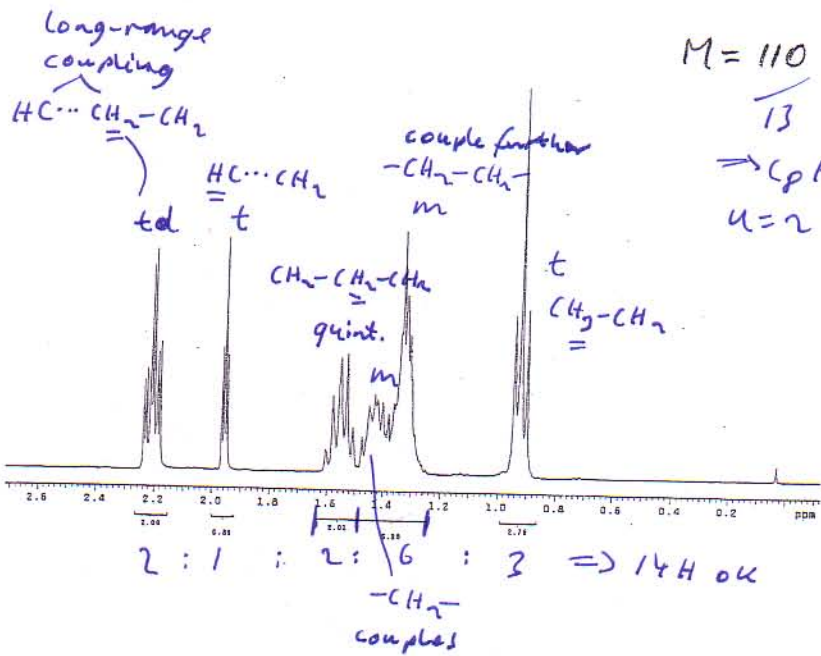 long-range
coupling
HC···CH₂-CH₂
td
HC···CH₂
t
CH₂-CH₂-CH₂
quint.
m
couple further
-CH₂-CH₂-
m
t
CH₃-CH₂
M = 110
13
⇒ C₈H
u = 2
2.6 2.4 2.2 2.0 1.8 1.6 1.4 1.2 1.0 0.8 0.6 0.4 0.2 ppm
2 : 1 : 2 : 6 : 3 ⇒ 14H ok
-CH₂-
couples